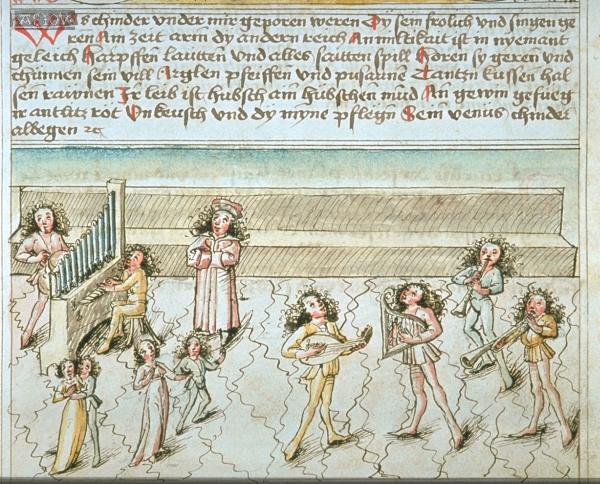 Was chinder under mir geporen weren Dy sein frolich und singen ge
ren Ain zeit arm dy andern reich An miltikait ist in nyemant
geleich Harpffen lautten und alles saitten spill Horen sy geren und
chunnen sein vill Arglen pfeiffen und pusaune Tantzn kussen hal
sen rawnen Ir leib ist hubsch ain hubschen mund An gewin gefueg
ir antlitz rot Unkeusch und dy myne pflegn Sein venus chinder
albegen